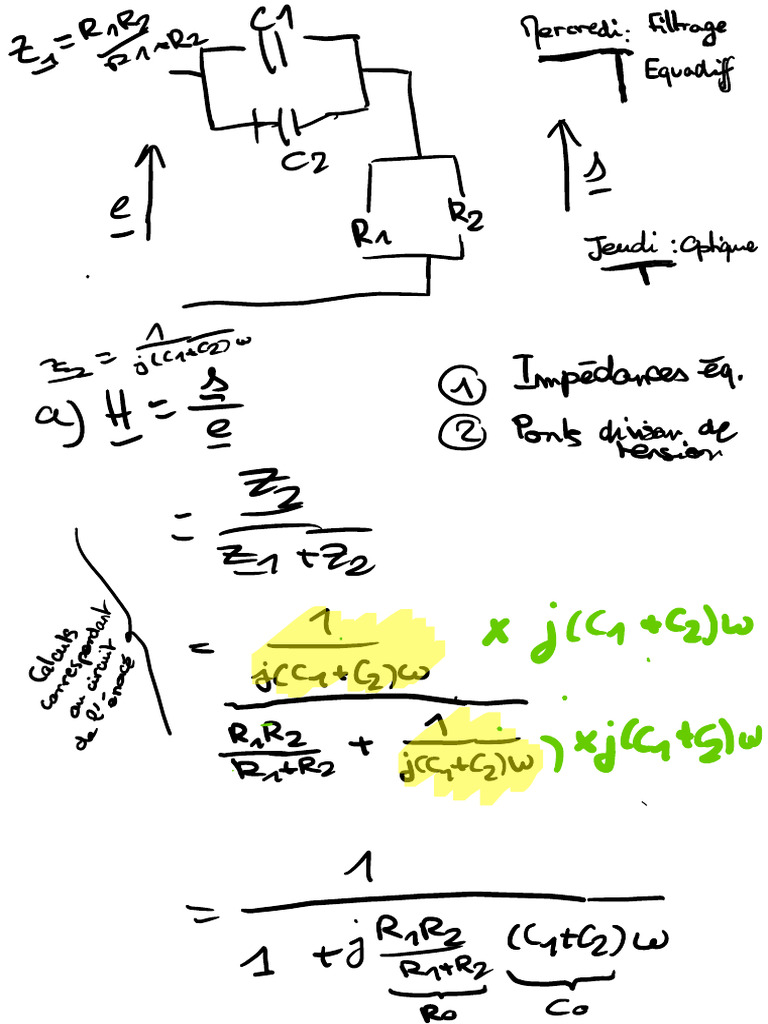 Z1 = R1R2 / R1+R2
C1
C2
e
R1
R2
s
Mercredi : Filtrage
Equadiff
Jeudi : Optique
Z2 = 1 / j(C1+C2)ω
a) H = s / e
① Impédances éq.
② Ponts diviseur de
tension
= Z2 / Z1 + Z2
Calculs
correspondant
au circuit
de l'énoncé
= 1 / j(C1+C2)ω × j(C1+C2)ω
R1R2 / R1+R2 + 1 / j(C1+C2)ω ) × j(C1+C2)ω
= 1 / 1 + j R1R2 / R1+R2 (C1+C2)ω
R0 C0